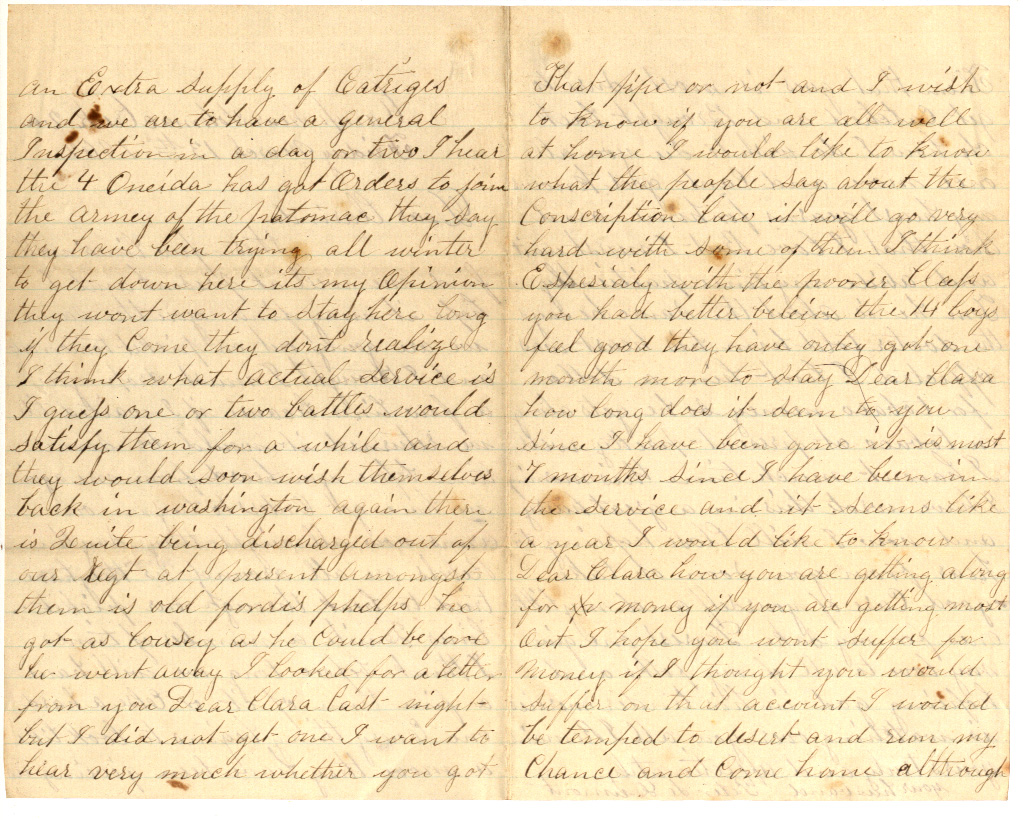 an Extra supply of Catriges
and we are to have a general
Inspection in a day or two I hear
the 4 Oneida has got Orders to join
the Armey of the patomac they say
they have been trying all winter
to get down here its my Opinion
they wont want to stay here long
if they Come they dont realize
I think what actual service is
I guess one or two battles would
satisfy them for a while and
they would soon wish themselves
back in washington again there
is Quite being discharged out of
our Regt at present Amongst
them is old fordis phelps he
got as Lousey as he Could before
he went away I looked for a letter
from you Dear Clara last night
but I did not get one I want to
hear very much whether you got
That pipe or not and I wish
to know if you are all well
at home I would like to know
what the people say about the
Conscription law it will go very
hard with some of them I think
Espesialy with the poorer Class
you had better beleive the 14 boys
feel good they have onley got one
month more to stay Dear Clara
how long does it seem to you
since I have been gone it is most
7 months since I have been in
the service and it seems like
a year I would like to know
Dear Clara how you are getting along
for money if you are getting most
Out I hope you wont suffer for
Money if I thought you would
suffer on that account I would
be temped to desert and run my
Chance and Come home although